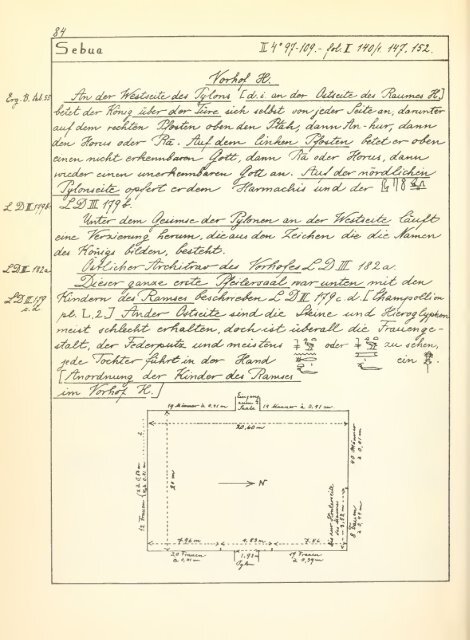 84
Sebua II 4° 97-109.- fol. I 140/1 147. 152.
Vorhof H.
Erg. B. bl. 55 An der Westseite des Pylons [d. i. an der Ostseite des Raumes H.]
betet der König über der Türe sich selbst von jeder Seite an, darunter
auf dem rechten Pfosten oben den Ptah, dann An-hur, dann
den Horus oder Ra. Auf dem linken Pfosten betet er oben
einen nicht erkennbaren Gott, dann Ra oder Horus, dann
wieder einen unerkennbaren Gott an. Auf der nördlichen
Pylonseite opfert er dem Harmachis und der
L D III 179 b. L D III 179 b.
Unter dem Gesimse der Pylonen an der Westseite läuft
eine Verzierung herum, die aus den Zeichen die die Namen
des Königs bilden, besteht.
L D III 182 a. Östlicher Architrav des Vorhofes L D III 182 a.
Dieser ganze erste Pfeilersaal war unten mit den
L D III 179 c. d. Kindern des Ramses beschrieben L D III 179 c d. [Champollion
pl. L, 2.] An der Ostseite sind die Steine und Hieroglyphen
meist schlecht erhalten, doch ist überall die Frauenge-
stalt, der Federputz und meistens oder zu sehen,
jede Tochter führt in der Hand ein
[Anordnung der Kinder des Ramses
im Vorhof H.]
19 Männer à 0,91 m
Eingang zum Saale
19 Männer à 0,91 m
20,60 m
20 m
N
12 Frauen
8 Frauen
7.96 m
4.83 m
7.86
20 Frauen
1,93 m
Pylon
19 Frauen
à 0,39 m